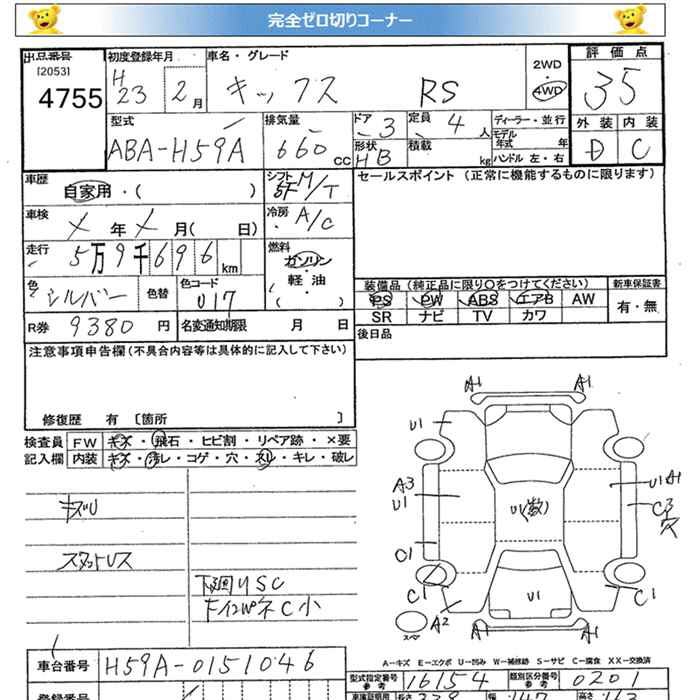 完全ゼロ切りコーナー
出品番号 [2053] 4755
初度登録年月 H23 2月
車名・グレード キックス RS
2WD・4WD
評価点 35
外装 D 内装 C
型式 ABA-H59A
排気量 660 CC
ドア 3 定員 4人
形状 HB 積載 kg
ディーラー・並行
モデル年式 年
ハンドル 左・右
車歴 自家用・( )
シフト 5F M/T
セールスポイント (正常に機能するものに限ります)
車検 X年X月( 日)
冷房 A/C
走行 5万9千696km
燃料 ガソリン・軽油 ( )
色 シルバー 色替
色コード U17
装備品 (純正品に限り○をつけてください)
新車保証書 有・無
PS PW ABS エアB AW
SR ナビ TV カワ
R券 9380円
名変通知期限 月 日
後日品
注意事項申告欄(不具合内容等は具体的に記入して下さい)
修復歴 有 〔箇所 〕
検査員 FW キズ・飛石・ヒビ割・リペア跡・×要
記入欄 内装 キズ・汚レ・コゲ・穴・スレ・キレ・破レ
キズU
スタットレス
下廻りSC
ドインパネC小
A1 A1
U1
A3 U1
U1A1
C3穴
U(数)
C1
C1
C1
A2
U1
スペア
A1 A1
A-キズ E-エクボ U-凹み W-補修跡 S-サビ C-腐食 XX-交換済
車台番号 H59A-0151046
型式指定番号 参考 16154
類別区分番号 参考 0201
登録番号
車庫証明用 参考 長さ 339 幅 147 高さ 163